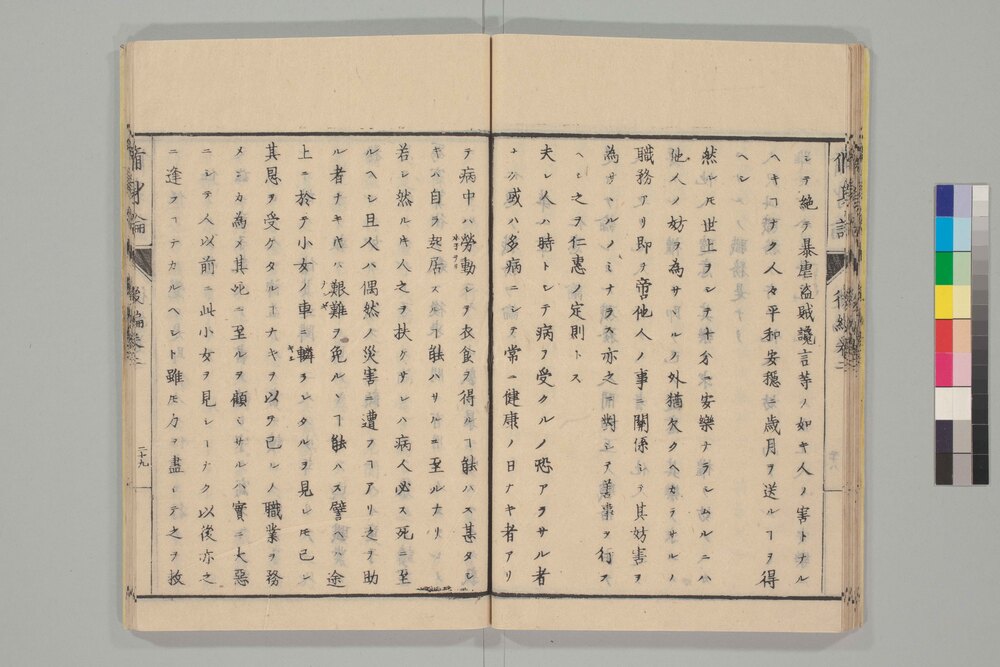 シテ絶テ暴虐盗賊讒言等ノ如キ人ノ害トナル
ヘキヿナク人々平和安穏ニ歳月ヲ送ルヿヲ得
ヘシ
然レ𪜈世上ヲシテ十分ニ安樂ナラシムルニハ
他人ノ妨ヲ為サヽルノ外猶欠クヘカラサルノ
職務アリ即ヲ啻他人ノ事ニ關係シテ其妨害ヲ
為サヽルノミナラス亦之ニ對シテ善業ヲ行フ
ヘシ之ヲ仁惠ノ定則トス
夫レ人ハ時トシテ病ヲ受クルノ恐アラサル者
ナク或ハ多病ニシテ常ニ健康ノ日ナキ者アリ
テ病中ハ勞動シテ衣食ヲ得ルヿ能ハス甚タシ
キハ自ラ起居スルヿ能ハサルニ至ルナリ
若シ然ルキ人之ヲ扶ケサレハ病人必ス死ニ至
ルヘシ且人ハ偶然ノ災害ニ遭フヿアリ之ヲ助
ル者ナキ𪜈ハ艱難ヲ免ルヽヿ能ハス譬ヘハ途
上ニ於テ小女ノ車ニ轔ラレタルヲ見レ𪜈己レ
其恩ヲ受ケタルヿナキヲ以テ己レノ職業ヲ務
メンカ為メ其死ニ至ルヲ顧ミサルハ實ニ大惡
ニシテ人以前ニ此小女ヲ見シヿナク以後亦之
ニ逢フヿナカルヘシト雖𪜈力ヲ盡シテ之ヲ救
脩身論
後編巻二
二十九